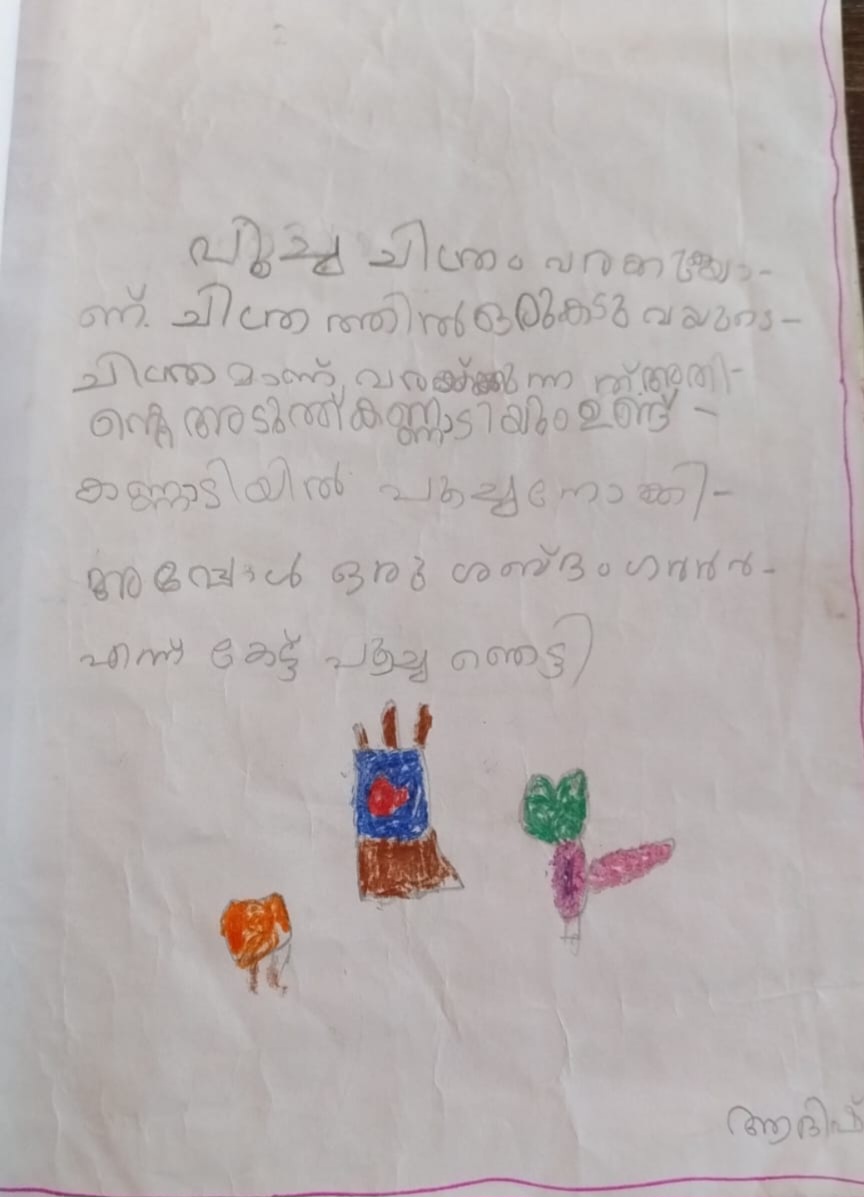 പൂച്ച ചിത്രം വരക്കുയാ-
ണ്. ചിത്ര ത്തിൽ ഒരു കടു വയുടെ-
ചിത്ര മാണ് വരയ്ക്കു ന്ന ത് അതി-
ന്റെ അടുത്ത് കണ്ണാടിയും ഉണ്ട് -
കണ്ണാടിയിൽ പൂച്ച നോക്കി-
അപ്പോൾ ഒരു ശബ്ദം ഗർർർ-
എന്ന് കേട്ട് പൂച്ച ഞെട്ടി
ആദിഫ്